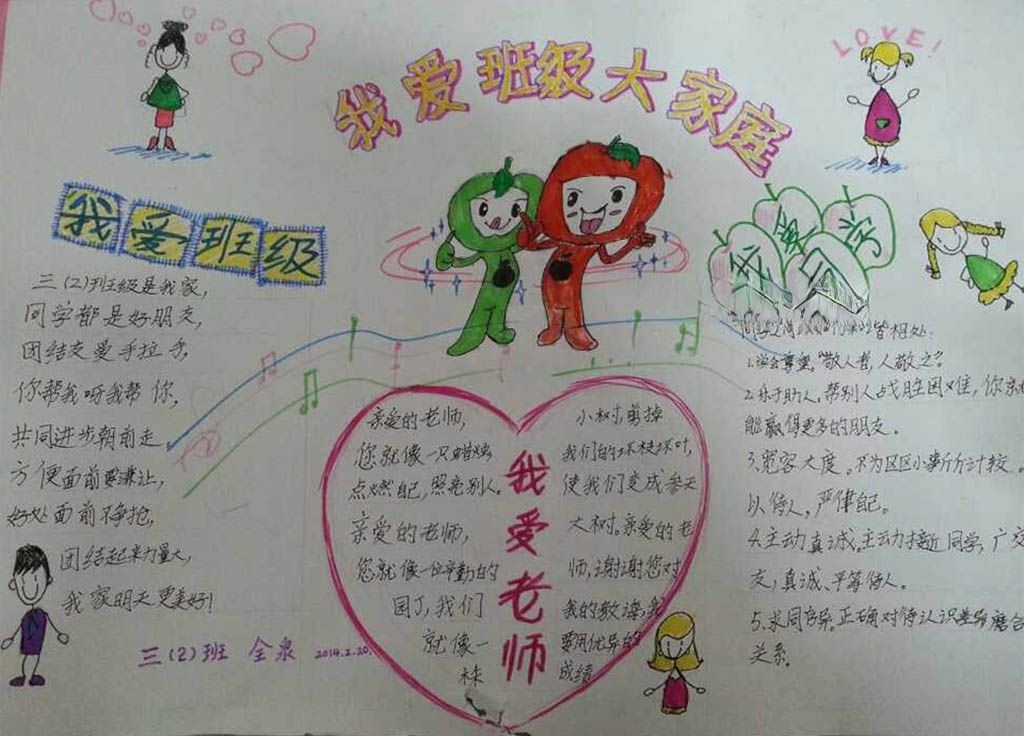 我爱班级大家庭
LOVE!
我爱班级
三(2)班级是我家,
同学都是好朋友,
团结友爱手拉手,
你帮我呀我帮你,
共同进步朝前走
方便面前要谦让,
好处面前不争抢,
团结起来力量大,
我家明天更美好!
三(2)班 全泉 2014.2.20.
我爱老师
亲爱的老师,
您就像一只蜡烛
点燃自己,照亮别人。
亲爱的老师,
您就像一位辛勤的
园丁,我们
就像一
棵
小树,剪掉
我们的坏枝坏叶,
使我们变成参天
大树。亲爱的老
师,谢谢您对
我的教诲,我
要用优异的
成绩
我爱同学
相处:
1.学会尊重。"敬人者,人敬之"。
2.乐于助人。帮别人战胜困难,你就
能赢得更多的朋友。
3.宽容大度。不为区区小事斤斤计较。
以待人,严律自己。
4.主动真诚。主动接近同学,广交
友,真诚、平等待人。
5.求同存异。正确对待认识差异磨合
关系。